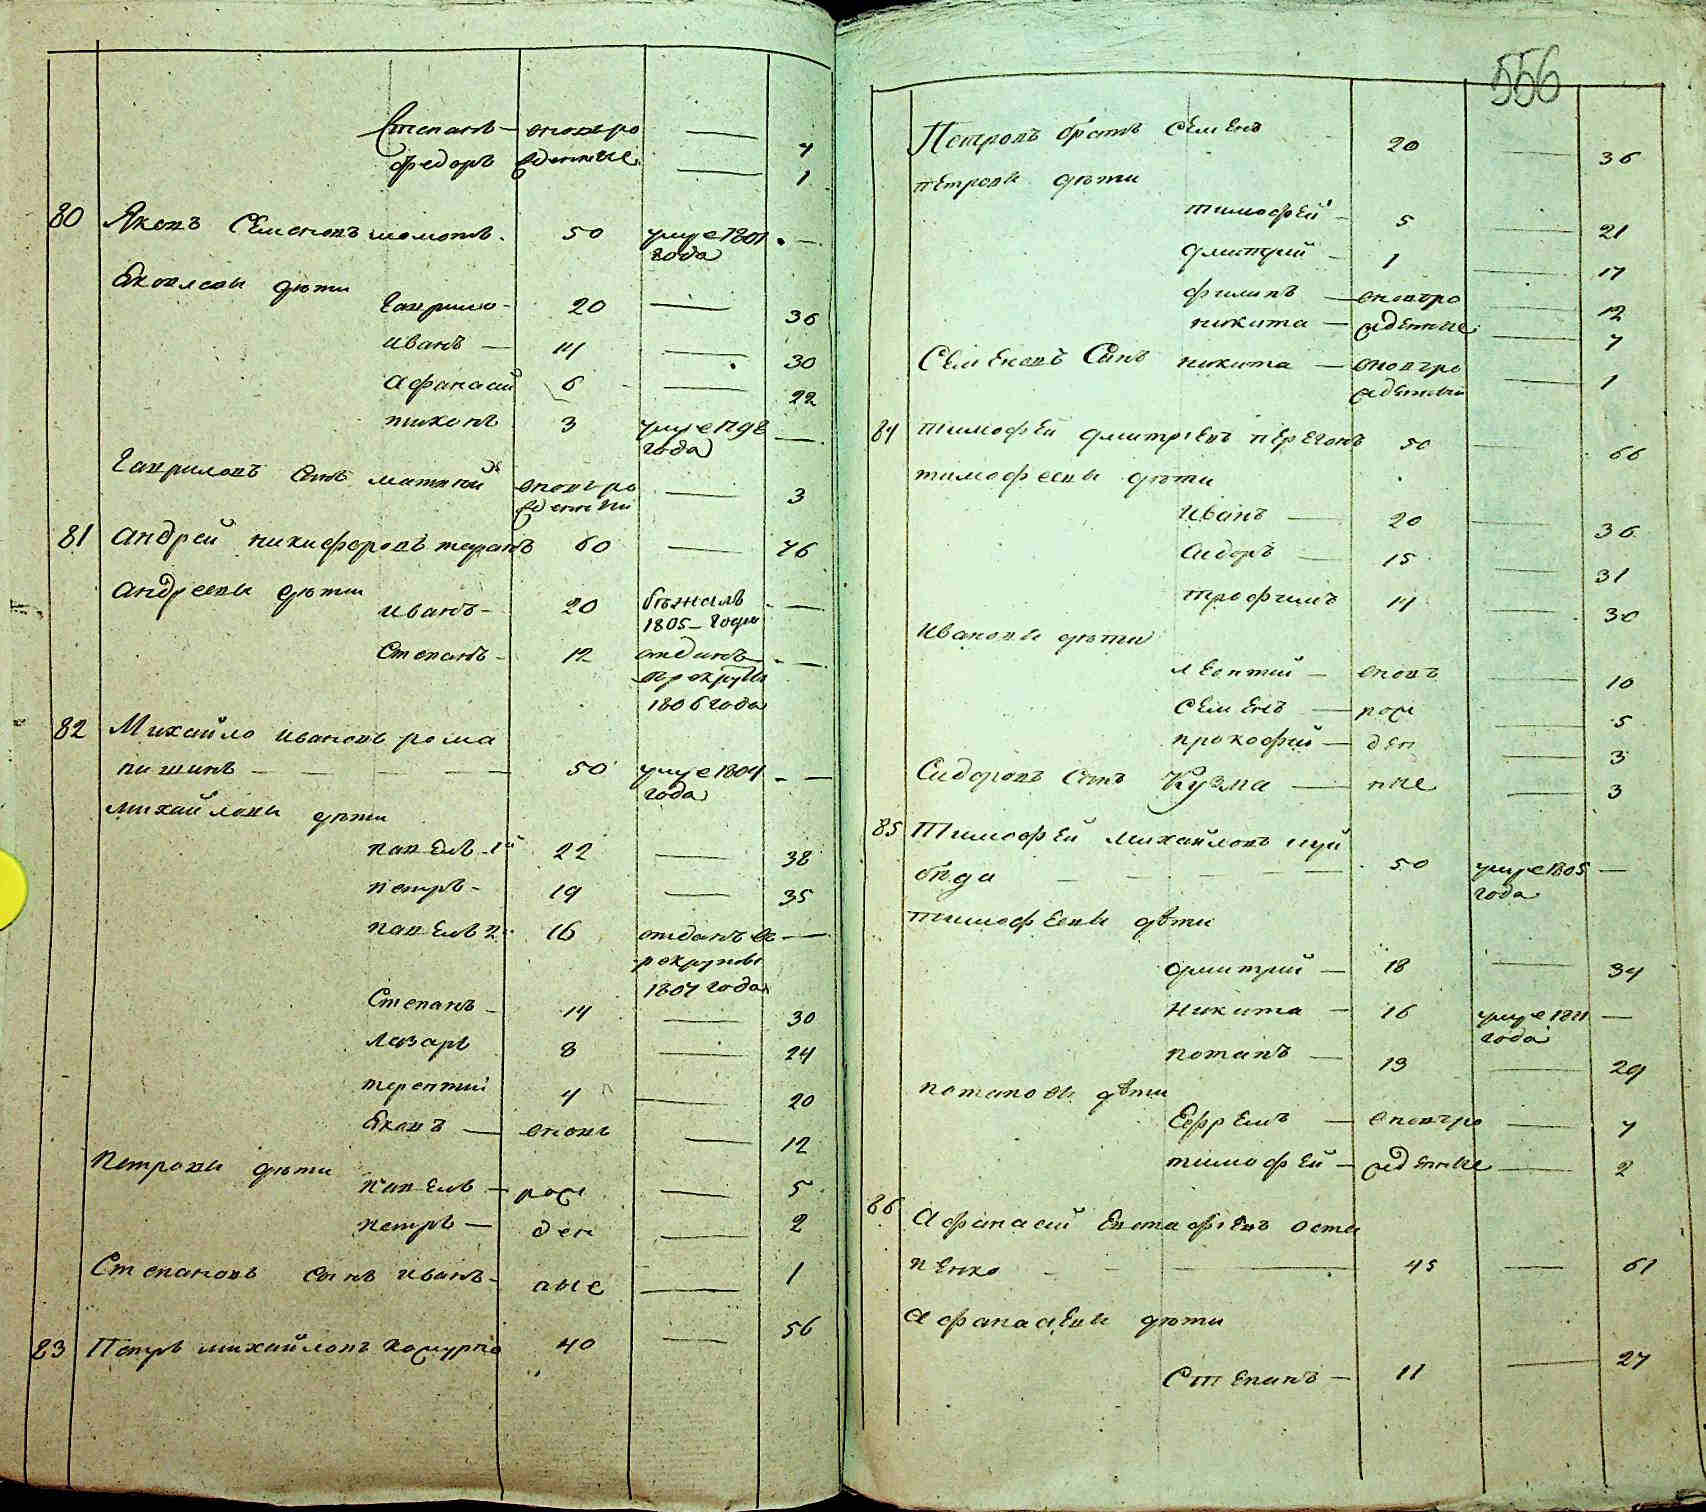 Степанъ — вновьро — 4
Федоръ жденные — 1
80 Яковъ Семеновъ шомотъ. 50 умре 1801 —
года
Яковлевы дѣти
Гаврило - 20 — 36
иванъ — 14 — 30
афанасий 6 — 22
тихонъ 3 умре 1798 —
года
Гавриловъ сынъ матвей вновьро — 3
жденный
81 андрей никифоровъ таранъ 60 — 76
андреевы дѣти
иванъ - 20 бѣжалъ —
1805 - года
Степанъ - 12 отданъ —
в рекруты
1806 года
82 Михайло ивановъ рома
нишинъ — — — — 50 умре 1804 —
года
михайловы дѣти
павелъ 1й 22 — 38
петръ - 19 — 35
павелъ 2й 16 отданъ въ —
рекруты
1807 года
Степанъ - 14 — 30
лазарь 8 — 24
терентий 4 — 20
яковъ — вновь — 12
Петровы дѣти
павелъ — рож — 5
петръ — ден — 2
Степановъ сынъ иванъ - ные — 1
83 Петръ михайловъ 40 — 56
556
Петровъ братъ семенъ 20 — 36
петровы дѣти
тимофей - 5 — 21
дмитрий - 1 — 17
филипъ — вновьро — 12
никита — жденные — 7
Семеновъ сынъ никита — вновьро — 1
жденный
84 тимофей дмитриевъ перегонъ 50 — 66
тимофеевы дѣти
иванъ — 20 — 36
сидоръ — 15 — 31
трофимъ 14 — 30
ивановы дѣти
леонтий — вновь — 10
семенъ — рож — 5
прокофий — ден — 3
Сидоровъ сынъ Кузма — ные — 3
85 Тимофей михайловъ
— — — — — 50 умре 1805 —
года
тимофеевы дѣти
дмитрий — 18 — 34
никита — 16 умре 1811 —
года
потапъ — 13 — 29
потаповы дѣти
Ефремъ — вновьро — 4
тимофей — жденные — 2
86 афанасий евстафиевъ оста
пенко — — — 45 — 61
афанасиевы дѣти
Степанъ — 11 — 27